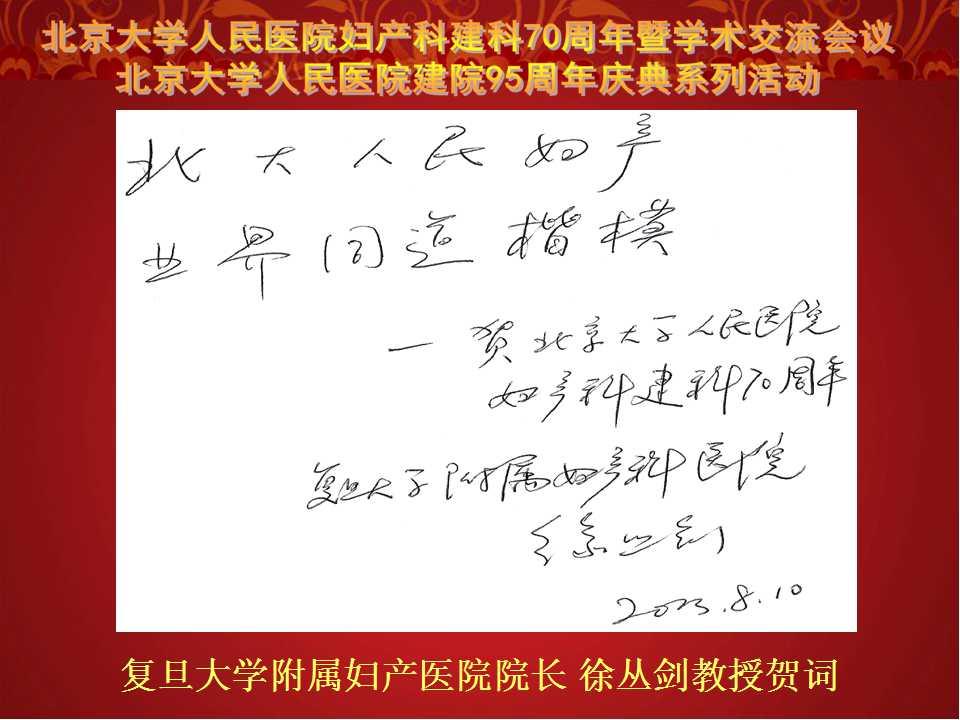 北京大学人民医院妇产科建科70周年暨学术交流会议
北京大学人民医院建院95周年庆典系列活动
北大人民妇产
业界同道楷模
一贺北京大学人民医院
妇产科建科70周年
复旦大学附属妇产科医院
徐丛剑
2013.8.10
复旦大学附属妇产医院院长 徐丛剑教授贺词